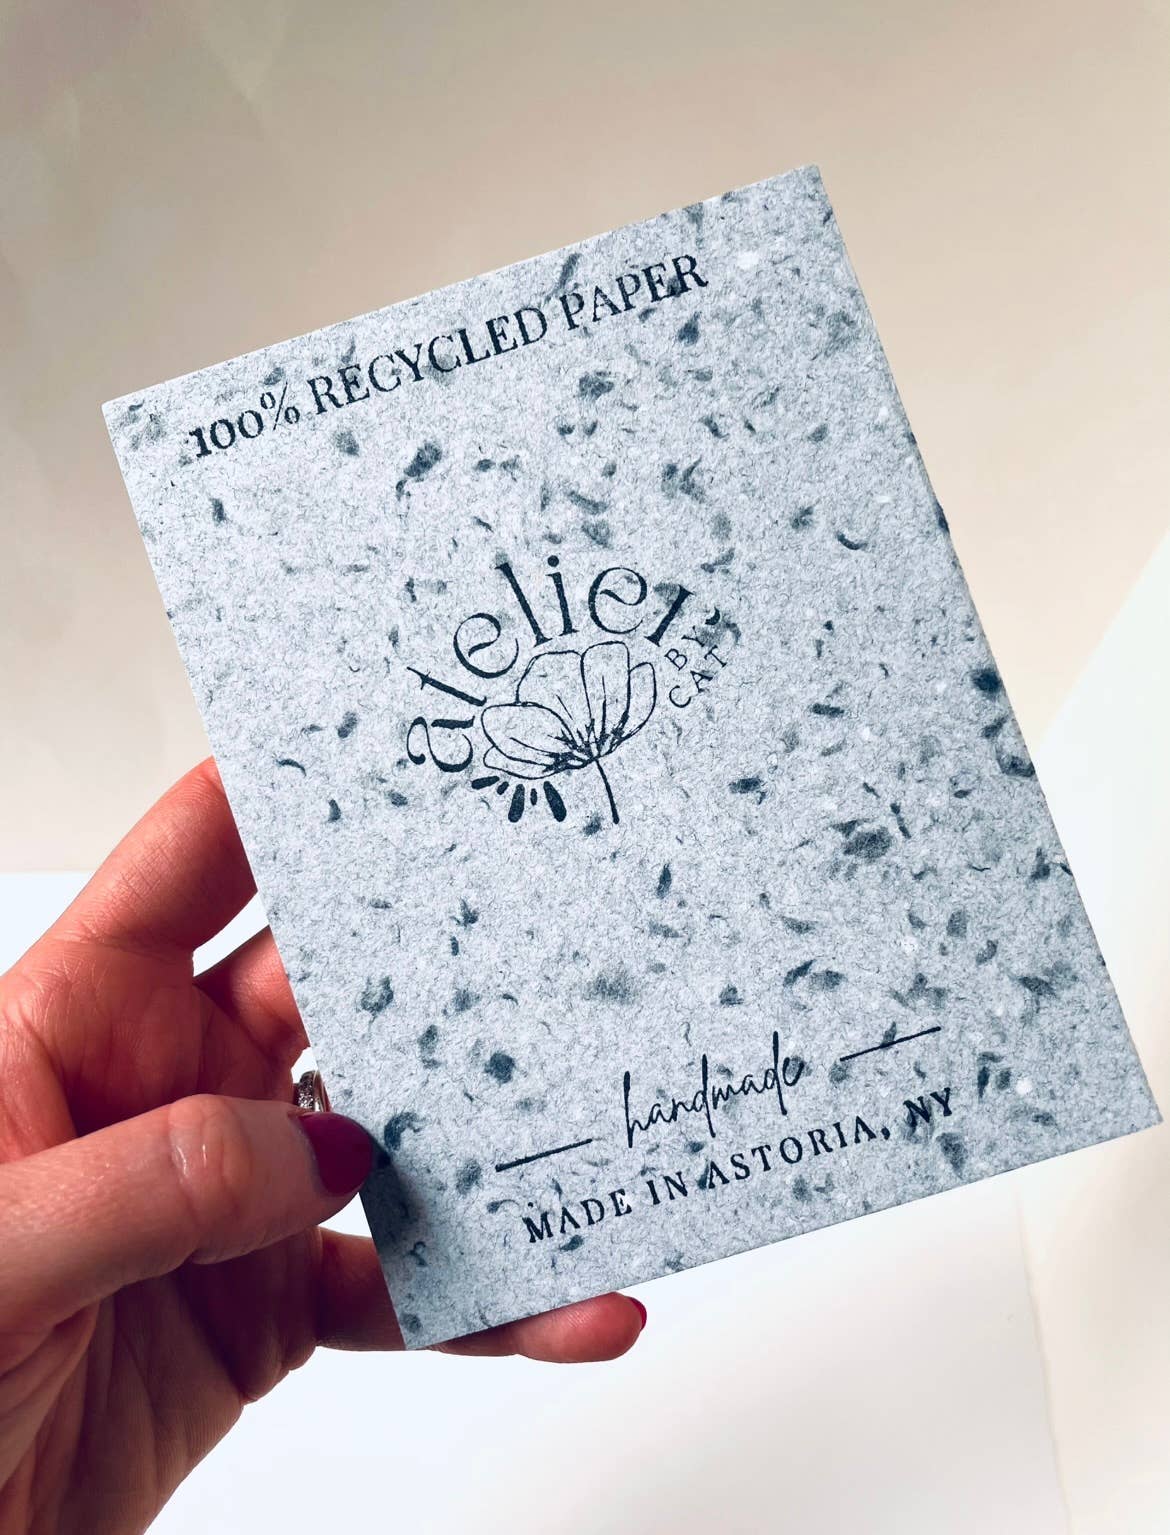 100% RECYCLED PAPER
atelier
BY
CAT
handmade
MADE IN ASTORIA, NY